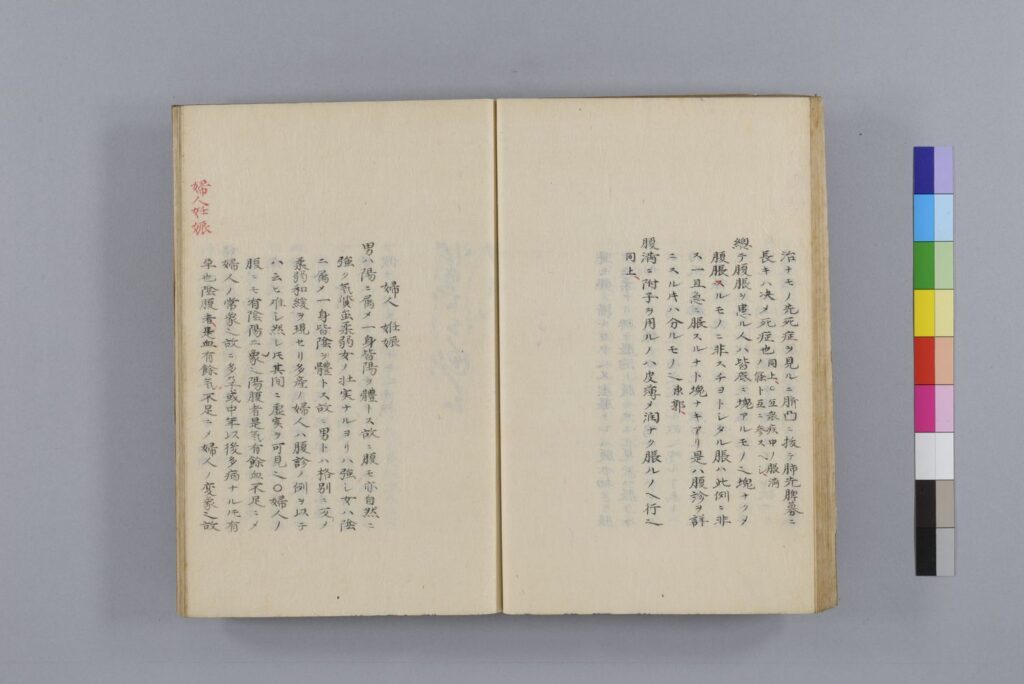 治ナモノ先死症ヲ見ルニ臍凸ニ抜テ肺先脾募ニ
長キハ决メ死症也同上○互ニ衆疾中ノ脹満
ノ條ト互ニ参スヘシ
總テ腹脹ヲ患ル人ハ皆底ニ塊アルモノ也塊ナクメ
腹脹スルモノニ非スチヨトシタル脹ハ此例ニ非
ス一旦急ニ脹スルナト塊ナキアリ是ハ腹診ヲ詳
ニスル片ハ分ルモノ也東郭
腹満ニ附子ヲ用ルノハ皮薄メ潤ナク脹ル ヘ行
同上
婦人妊娠
婦人 妊娠
男ハ陽ニ属メ一身皆陽ヲ體トス故ニ腹モ亦自然ニ
強ク氣質虽柔弱女ノ壮実ナルヨリハ強し女ハ陰
ニ属メ一身皆陰ヲ體トス故ニ男トハ格別ニ
柔弱和緩ヲ現セリ多産ノ婦人ハ腹診ノ例ヲ以テ
ハ云ヒ难し然レ𪜈其間ニ虚実ヲ可見也○婦人ノ
腹ニモ有陰陽二象也陽腹者是気有餘血不足ニメ
婦人ノ常象也故ニ多孕或中年以後多病ナル𪜈有
孕也陰腹者是血有餘気不足ニメ婦人ノ変象也故